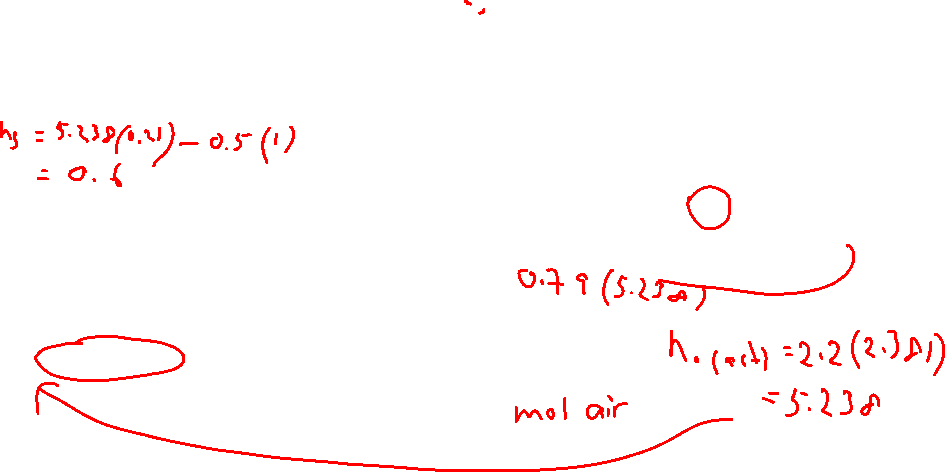 n₅ = 5.238(0.21) - 0.5(1)
= 0.6
0.79(5.238)
n.(act) = 2.2(2.381)
= 5.238
mol air